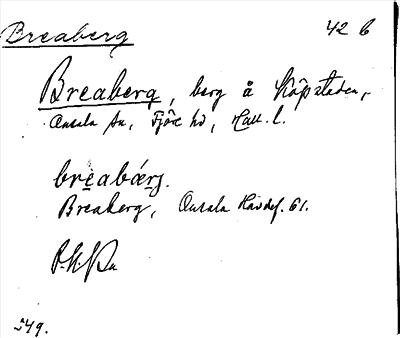 Breaberg 42 b
Breaberg, berg å Köpstaden,
Onsala sn, Fjäre hd, Hall. l.
breabærj.
Breaberg, Onsala Havdef. 61.
549.